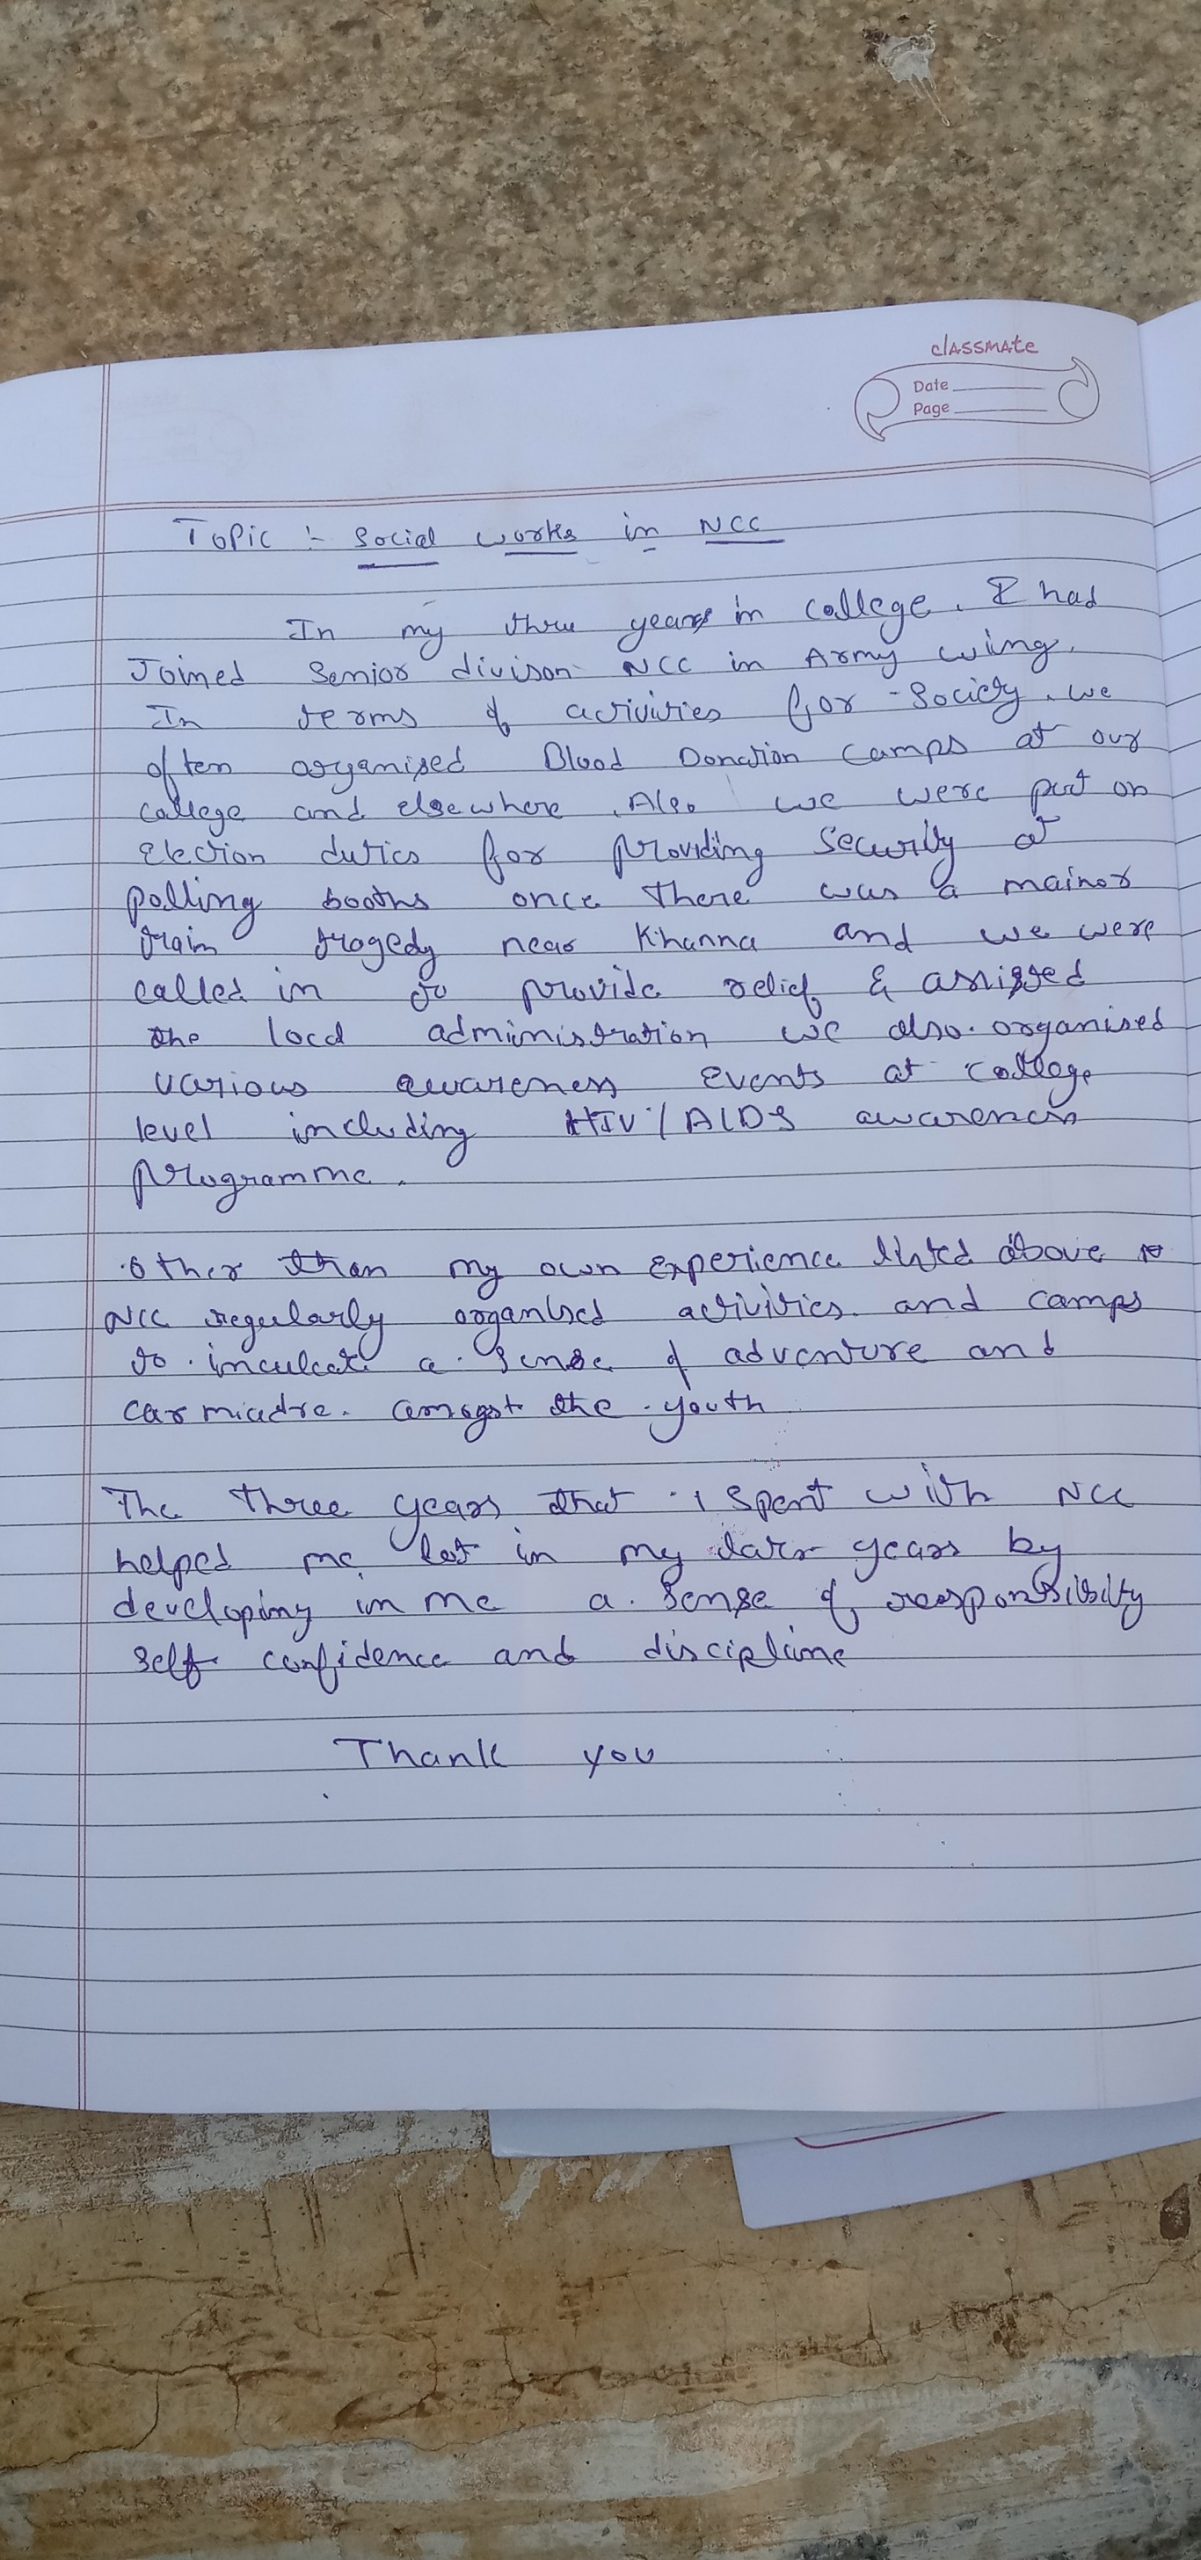 classmate
Date
Page
Topic :- Social works in NCC
In my three years in college. I had
Joined Senior divison NCC in Army wing.
In terms of activities for Society. we
often organised Blood Donation camps at our
college and elsewhere. Also we were put on
Election duties for providing security at
polling booths once there was a mainor
train tragedy near Khanna and we were
called in to provide relief & assisted
the locd administration we also organised
various awareness Events at college
level including HIV/AIDS awareness
programme.
Other than my own Experience listed above
NCC regularly organised activities and camps
to inculcate a sense of adventure and
carmiadre. amogst the youth
The three years that I spent with NCC
helped me lot in my later years by
developing in me a sense of responsibility
self confidence and discipline
Thank you